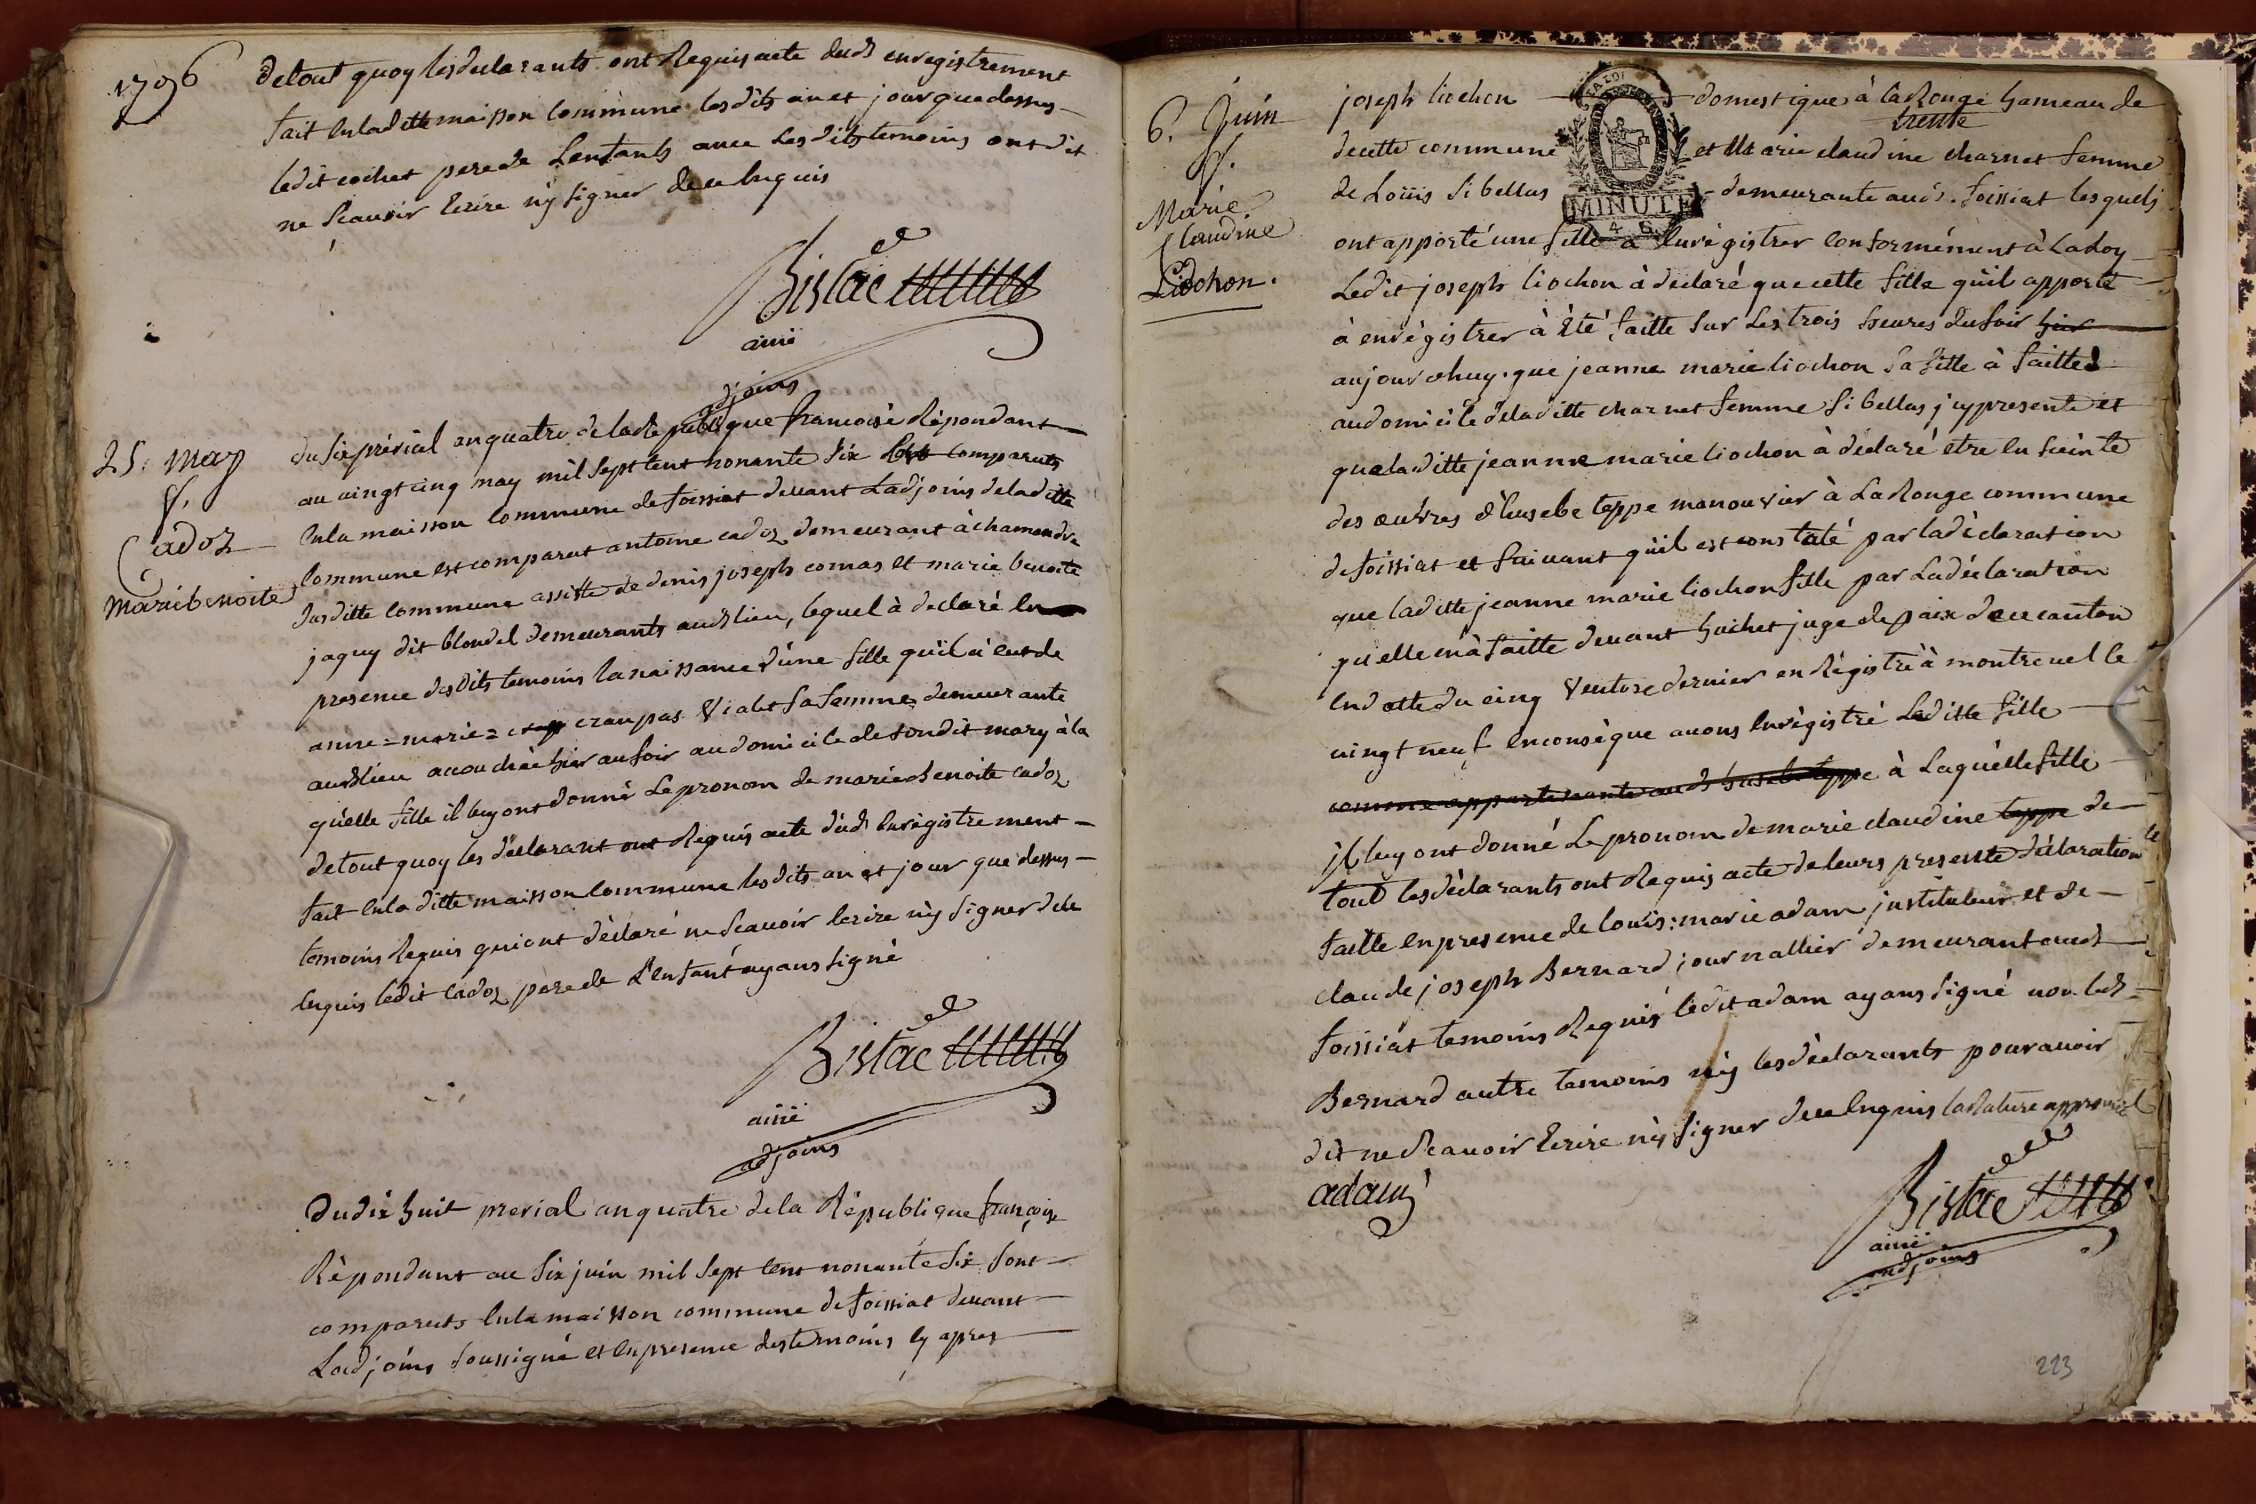 1796
detout quoy lesdeclarants ont Requis acte dudt enregistrement
fait Enladitte maisson Commune lesdits an et jour quedessus
ledit cochet pere de Lenfants avec Lesdits temoins ont dit
ne Scauoir Ecrire ny signer de ce Enquis
Bistac
ainé
adjoins
25. may
Cadoz
marie benoite
du six prérial an quatre de la Republique francoise Répondant
au vingt cinq may mil sept cent nonante six comparuts
Enla maisson commune de foissiat devant Ladjoins deladitte
Commune est comparut antoine cadoz demeurant à chamandre
Susditte Commune assiste de denis joseph comas et marie benoite
jaquy dit blondel demeurants audt lieu, lequel à declaré En
presence desdits temoins la naissance d'une fille qu'il a eut de
anne=marie= cranpas Vialet sa femme demeurante
audt lieu accouchée hier au soir au domicile de sondit mary à la
quelle fille il luy ont donné Le pronom de marie benoite cadoz
detout quoy les déclarant ont Requis acte dudt Enrégistrement
fait Enla ditte maisson Commune lesdits an et jour que dessus
temoins Requis qui ont déclaré ne Scauoir Ecrire ny signer de ce
Enquis ledit Cadoz pere de L'enfant ayans signé
Bistac
ainé
adjoins
Dudix huit prerial an quatre dela République françoise
Répondant au six juin mil sept cent nonante six sont
comparuts Enla maisson commune de foissiat devant
Ladjoins soussigné et En presence des temoins cy apres
6. Juin
Marie
Claudine
Liochon.
joseph liochon domestique à la Rouge hameau de
trente
decette commune et Marie claudine charnet femme
de Loüis Sibellas demeurante audt. foissiat lesquels
MINUTE
ont apporté une fille a Enrégistrer Conformément à La Loy
Ledit joseph liochon à declaré que cette fille qu'il apporte
à enrégistrer à Eté faitte sur Les trois heures du soir hier
aujourdhuy. que jeanne marie liochon sa fille à faitte
audomicile deladitte charnet femme sibellas jcy presente et
que laditte jeanne marie liochon à déclaré etre Enceinte
des œuvres d'Eusebe teppe manouvrier à La Rouge commune
de foissiat et suivant qu'il est constaté par la déclaration
que laditte jeanne marie liochon fille par La déclaration
qu'elle en à faitte devant huchet juge de paix de ce canton
En datte du cinq Ventose dernier en Régistré à montrevel le
vingt neuf En conséque avons Enrégistré Laditte fille
comme appartenante audt Eusebe teppe à Laquélle fille
jl luy ont donné Le pronom de marie claudine teppe de
tout les déclarants ont Requis acte de leurs presente déclaration
faitte En presence de Louis: marie adam jnstituteur et de
claude joseph Bernard journallier demeurant audt
foissiat temoins Requis ledit adam ayans signé non ledt
Bernard autre temoins ny les déclarants pour avoir
dit ne Scavoir Ecrire ny signer de ce Enquis la Rature approuvé
adam
Bistac
ainé
adjoins
223